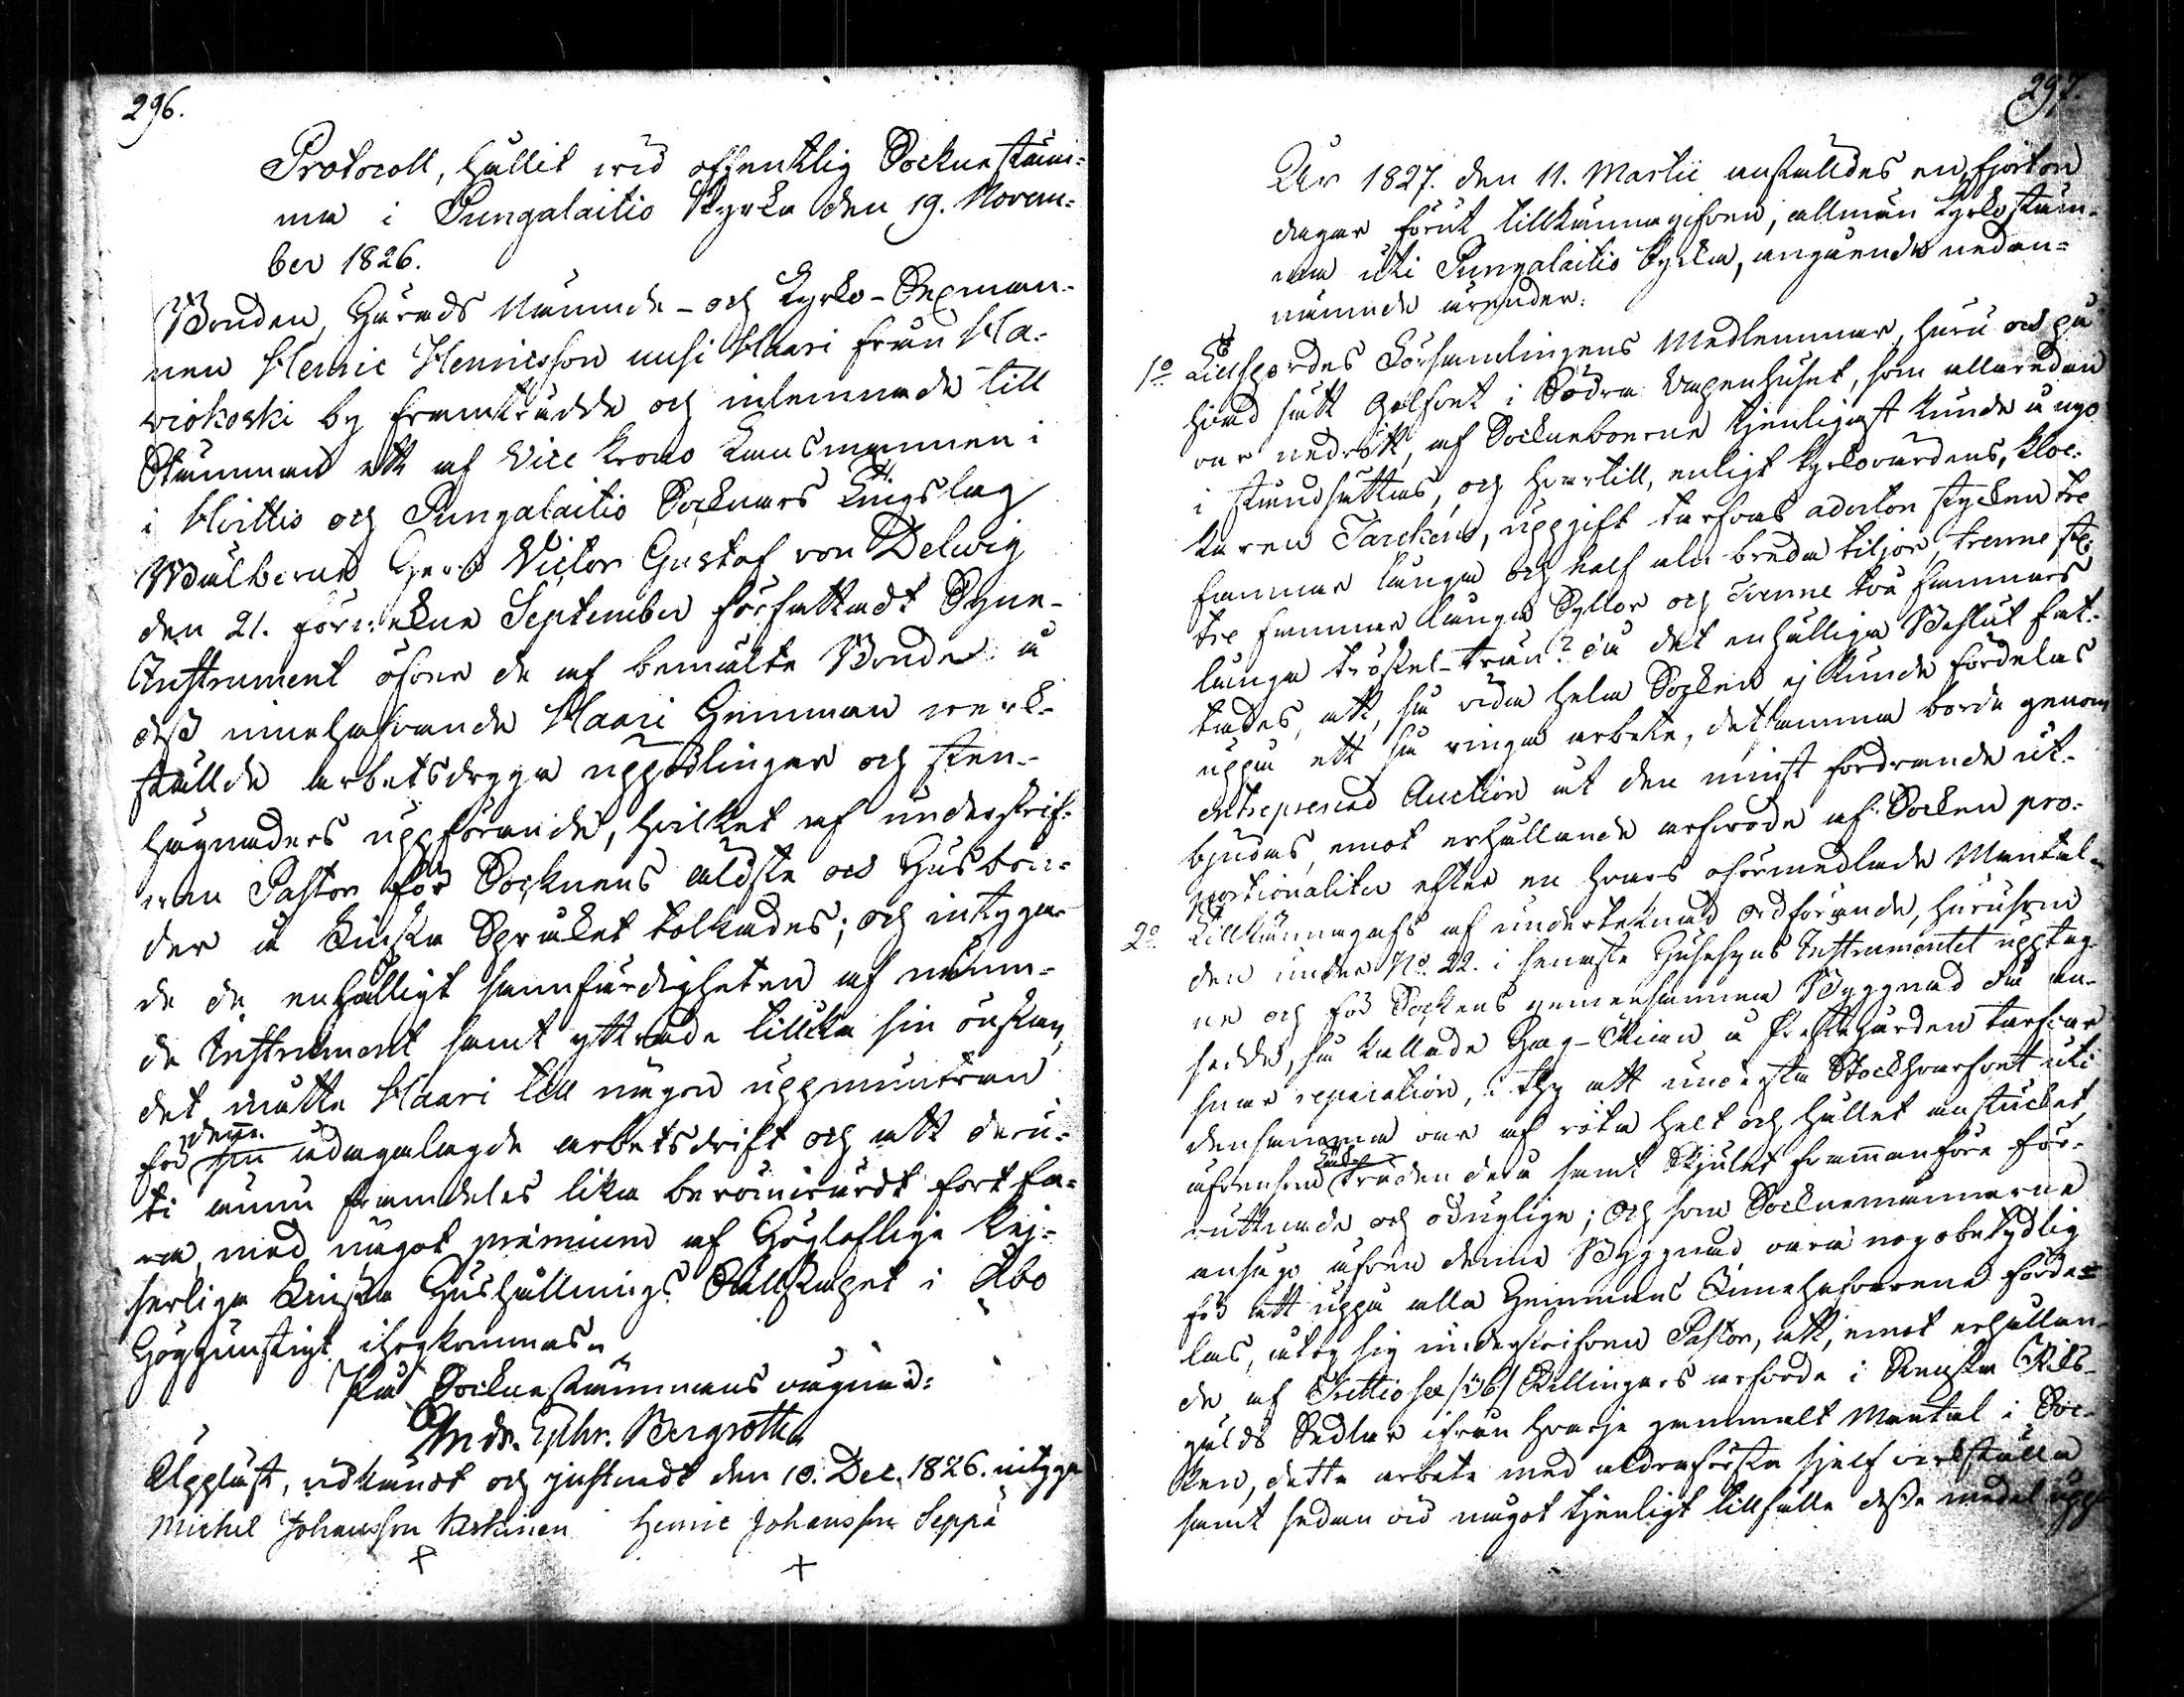 296.
Protocoll, hållit wid offentlig Sockne stäm-
ma i Pungalaitio Kyrka den 19. Novem-
ber 1826.
Bonden, Härads Nämnde- och Kyrko-Sexman-
nen Henric Henricsson uusi Haari från Ha-
viokoski by framträdde och inlemnade till
Stämman ett af Vice Krono Länsmannen i
i Hvittis och Pungalaitio Socknars Tingslag
Välborne Herr Victor Gustaf von Delwig
den 21. förvekne September författadt Syne-
Instrument öfver de af bemälte Bonde å
dess innehafvande Haari Hemman verk-
ställde arbetsdryga uppodlingar och sten-
hägnaders uppförande, hvilket af underskrif-
ven Pastor för Socknens äldste och Husbön-
der å Finska Språket tolkades; och intyga-
de de enhälligt sannfärdigheten af nämn-
de Instrument samt yttrade tillika sin önskan,
det måtte Haari till någon uppmuntran
för denne ådagalagde arbetsdrift och att deru-
ti ännu framdeles lika berömvärdt fortfa-
ra, med något præmium af Höglofliga Kej-
serliga Finska Hushållnings Sällskapet i Åbo
Höggunstigt ihogkommas.
På Sockne stämmans vägnar:
Andr. Ephr. Bergroth
Uppläst, vidkändt och justeradt den 10. Dec. 1826. intyga
Michel Johansson Keskinen Henric Johansson Seppä
297.
År 1827. den 11. Martii anställdes en, fjorton
dagar förut tillkännagifven, allmän Kyrkostäm-
ma uti Pungalaitio Kyrka, angående nedan-
nämnde ärender:
1o Tillspordes Församlingens Medlemmar, huru och på
hvad sätt Golfvet i Södra Vapenhuset, som allaredan
var nedrött, af Socknboerne tjenligast kunde å nyo
i stånd sättas, och hvartill, enligt Kyrkovärdens, Kloc-
karen Tarckéns, uppgift tarfvas aderton stycken tre
famnar långa och half aln breda tiljor, trenne st.
tre famnar långa Syllor och Tvenne två famnars
långa tröskel-trän? då det enhälliga Beslut fat-
tades, att, så vida hela Socken ej kunde fördelas
uppå ett så ringa arbete, detsamma borde genom
entreprenad Auction åt den minst fordrande ut-
bjudas, emot erhållande arfvode af Socken pro-
portionaliter efter en hvars oförmedlade Mantal.
2o Tillkännagafs af undertecknad Ordförande, hurusom
den under No. 22. i senaste Husesyns Instrumentet upptag-
ne och för Sockens gemensamma Byggnad då an-
sedde, så kallade Hag-Rian å Prestegården tarfvar
snar reparation, i thy att understa Stockhvarfvet uti
densamma var af röta helt och hållet anstucket,
äfvensom träden dera samt Skjulet frammanföre för-
ruttnade och oduglige; Och som Socknemännerne
ansågo äfven denne Byggnad vara nog obetydlig
för att uppå alla Hemmans Innehafvarena förde-
las, åtog sig underskrifven Pastor, att, emot erhållan-
de af Trettio sex /36/ Skillingars arfvode i Svenska Riks-
gälds Sedlar ifrån hvarje gammalt Mantal i Soc-
ken, detta arbete med aldraförsta sjelf verkställa
samt sedan vid något tjenligt tillfälle desse medel upp-